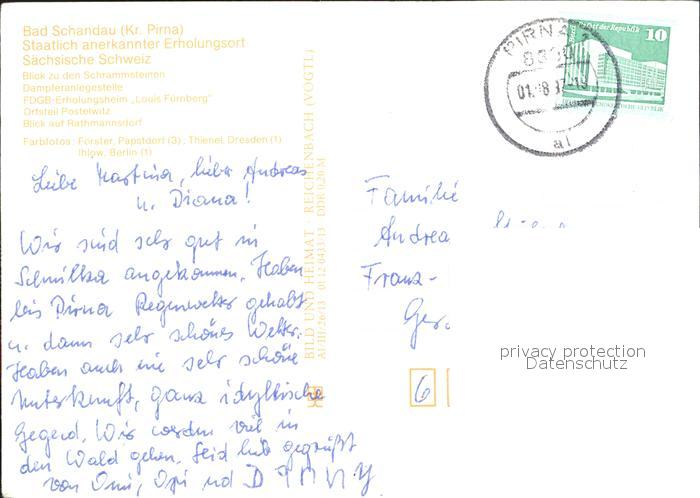 Bad Schandau (Kr. Pirna)
Staatlich anerkannter Erholungsort
Sächsische Schweiz
Blick zu den Schrammsteinen
Dampferanlegestelle
FDGB-Erholungsheim „Louis Fürnberg"
Ortsteil Postelwitz
Blick auf Rathmannsdorf
Farbfotos: Förster, Papstdorf (3); Thienel, Dresden (1)
Ihlow, Berlin (1)
Liebe Martina, lieber Andreas
u. Diana!
Wir sind sehr gut in
Schmilka angekommen. Haben
bis Pirna Regenwetter gehabt
u. dann sehr schönes Wetter.
Haben auch eine sehr schöne
Unterkunft, ganz idyllische
Gegend. Wir werden viel in
den Wald gehen. Seid lieb gegrüßt
von Omi, Opi und DIANY
BILD UND HEIMAT REICHENBACH (VOGTL)
A1/III/26/13 01 12 0433/13 DDR 0,20 M
PIRNA 1
8300
01. 8.8
a1
Palast der Republik
10
Familie
Andrea
Franz-
Ger.
6
privacy protection
Datenschutz